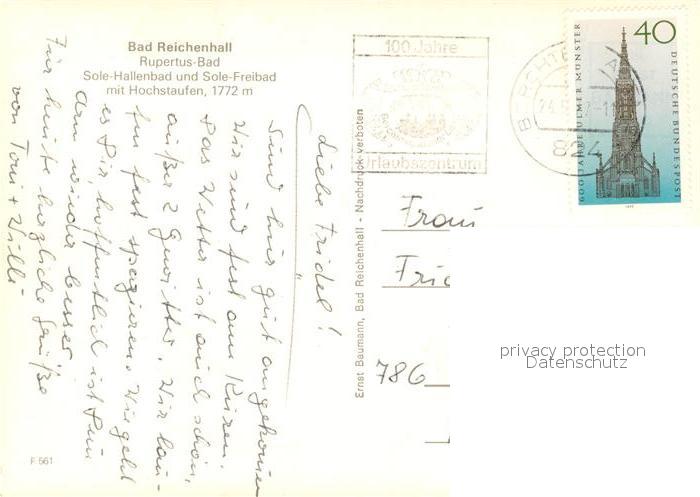 Bad Reichenhall
Rupertus-Bad
Sole-Hallenbad und Sole-Freibad
mit Hochstaufen, 1772 m
Liebe Fridel!
Sind hier gut angekommen
Wir sind fest am Kuren.
Das Wetter ist auch schön,
außer 2 Gewitter. Wir lau-
fen fest spazieren. Wie geht
es Dir, hoffentlich ist Dein
Arm wieder besser.
Für heute herzliche Grüße
von Toni + Willi
F 561
Ernst Baumann, Bad Reichenhall - Nachdruck verboten
100 Jahre
Urlaubszentrum
824
600 JAHRE ULMER MÜNSTER
40
DEUTSCHE BUNDESPOST
Frau
Frie
786
privacy protection
Datenschutz